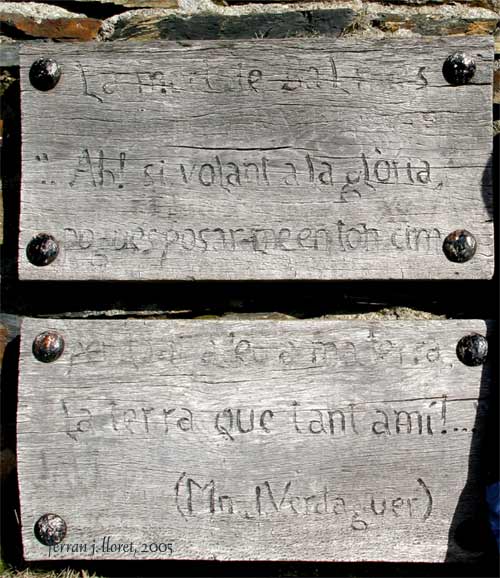 La mort de Balmes
"... Ah! si volant a la glòria,
pogués posar-me en ton cim
per dar adeu a ma terra,
la terra que tant amí!..."
(Mn. J. Verdaguer)
ferran j. lloret, 2005